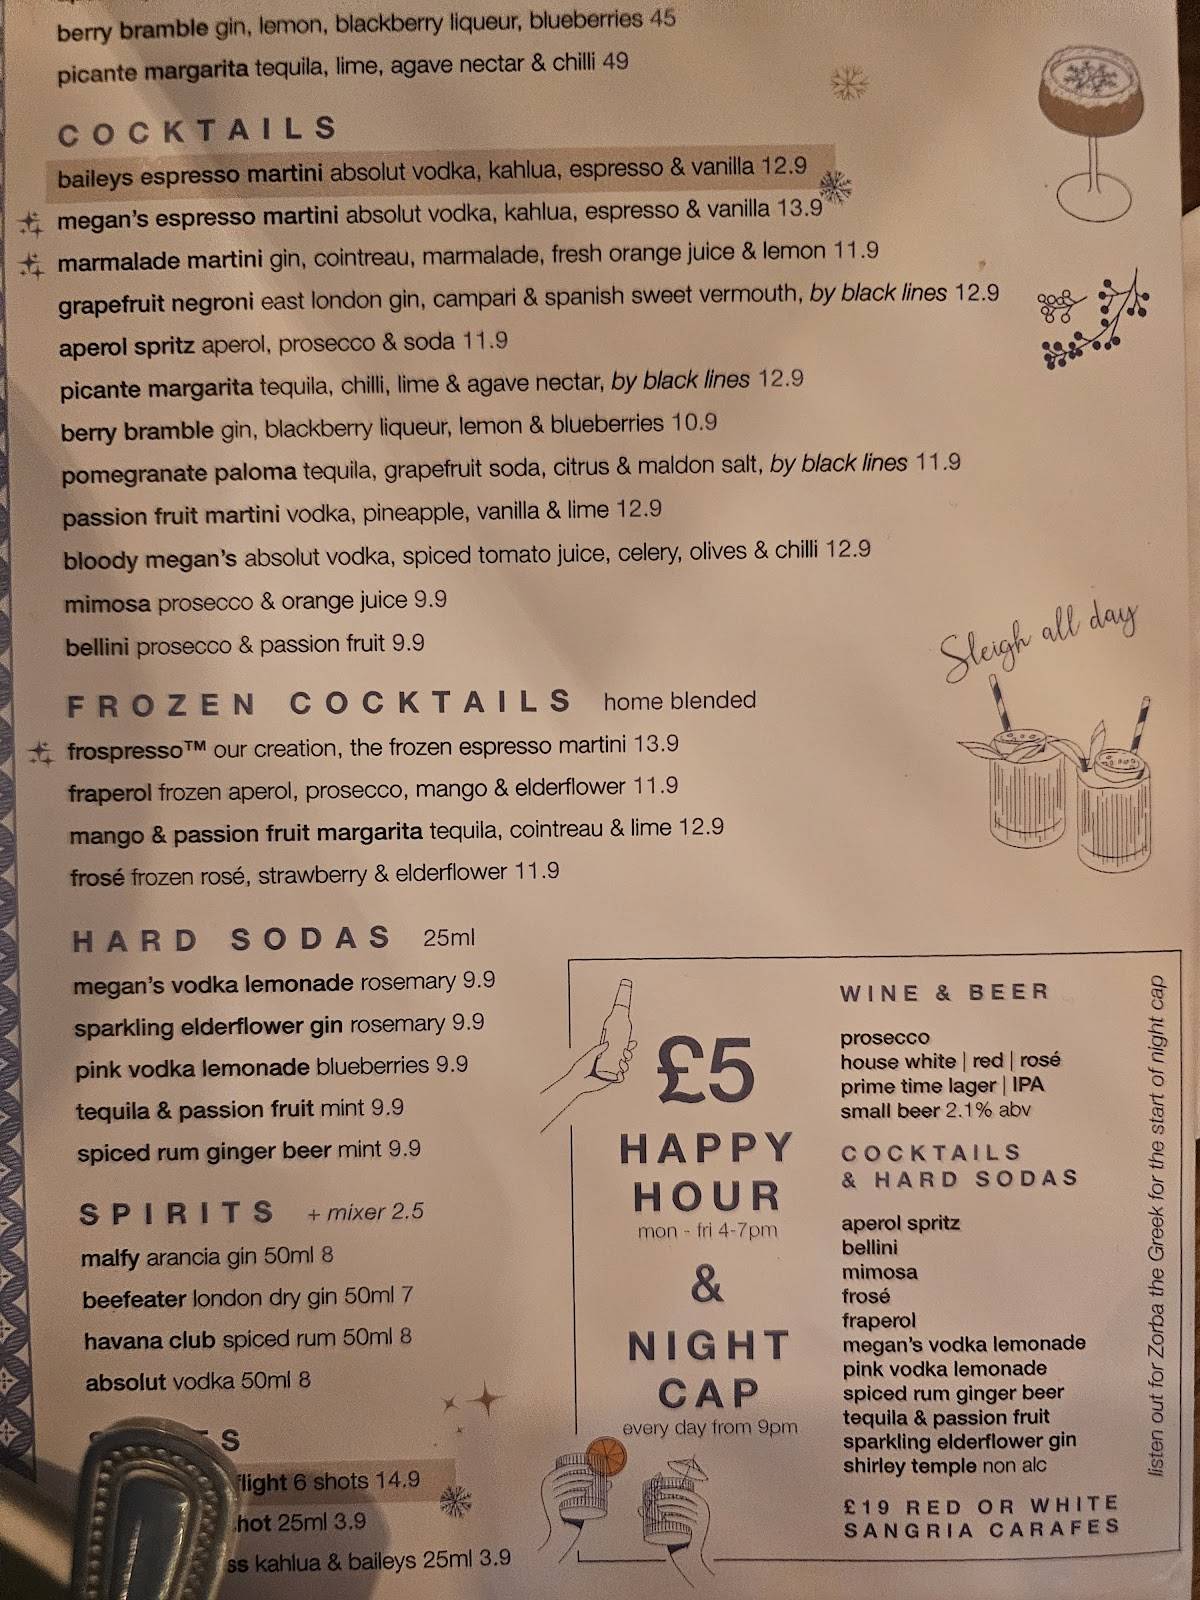 berry bramble gin, lemon, blackberry liqueur, blueberries 45
picante margarita tequila, lime, agave nectar & chilli 49
COCKTAILS
baileys espresso martini absolut vodka, kahlua, espresso & vanilla 12.9
megan's espresso martini absolut vodka, kahlua, espresso & vanilla 13.9
marmalade martini gin, cointreau, marmalade, fresh orange juice & lemon 11.9
grapefruit negroni east london gin, campari & spanish sweet vermouth, by black lines 12.9
aperol spritz aperol, prosecco & soda 11.9
picante margarita tequila, chilli, lime & agave nectar, by black lines 12.9
berry bramble gin, blackberry liqueur, lemon & blueberries 10.9
pomegranate paloma tequila, grapefruit soda, citrus & maldon salt, by black lines 11.9
passion fruit martini vodka, pineapple, vanilla & lime 12.9
bloody megan's absolut vodka, spiced tomato juice, celery, olives & chilli 12.9
mimosa prosecco & orange juice 9.9
bellini prosecco & passion fruit 9.9
Sleigh all day
FROZEN COCKTAILS home blended
frospresso™ our creation, the frozen espresso martini 13.9
fraperol frozen aperol, prosecco, mango & elderflower 11.9
mango & passion fruit margarita tequila, cointreau & lime 12.9
frosé frozen rosé, strawberry & elderflower 11.9
HARD SODAS 25ml
megan's vodka lemonade rosemary 9.9
sparkling elderflower gin rosemary 9.9
pink vodka lemonade blueberries 9.9
tequila & passion fruit mint 9.9
spiced rum ginger beer mint 9.9
SPIRITS + mixer 2.5
malfy arancia gin 50ml 8
beefeater london dry gin 50ml 7
havana club spiced rum 50ml 8
absolut vodka 50ml 8
S
flight 6 shots 14.9
hot 25ml 3.9
ss kahlua & baileys 25ml 3.9
£5
HAPPY
HOUR
mon - fri 4-7pm
&
NIGHT
CAP
every day from 9pm
WINE & BEER
prosecco
house white | red | rosé
prime time lager | IPA
small beer 2.1% abv
COCKTAILS
& HARD SODAS
aperol spritz
bellini
mimosa
frosé
fraperol
megan's vodka lemonade
pink vodka lemonade
spiced rum ginger beer
tequila & passion fruit
sparkling elderflower gin
shirley temple non alc
£19 RED OR WHITE
SANGRIA CARAFES
listen out for Zorba the Greek for the start of night cap